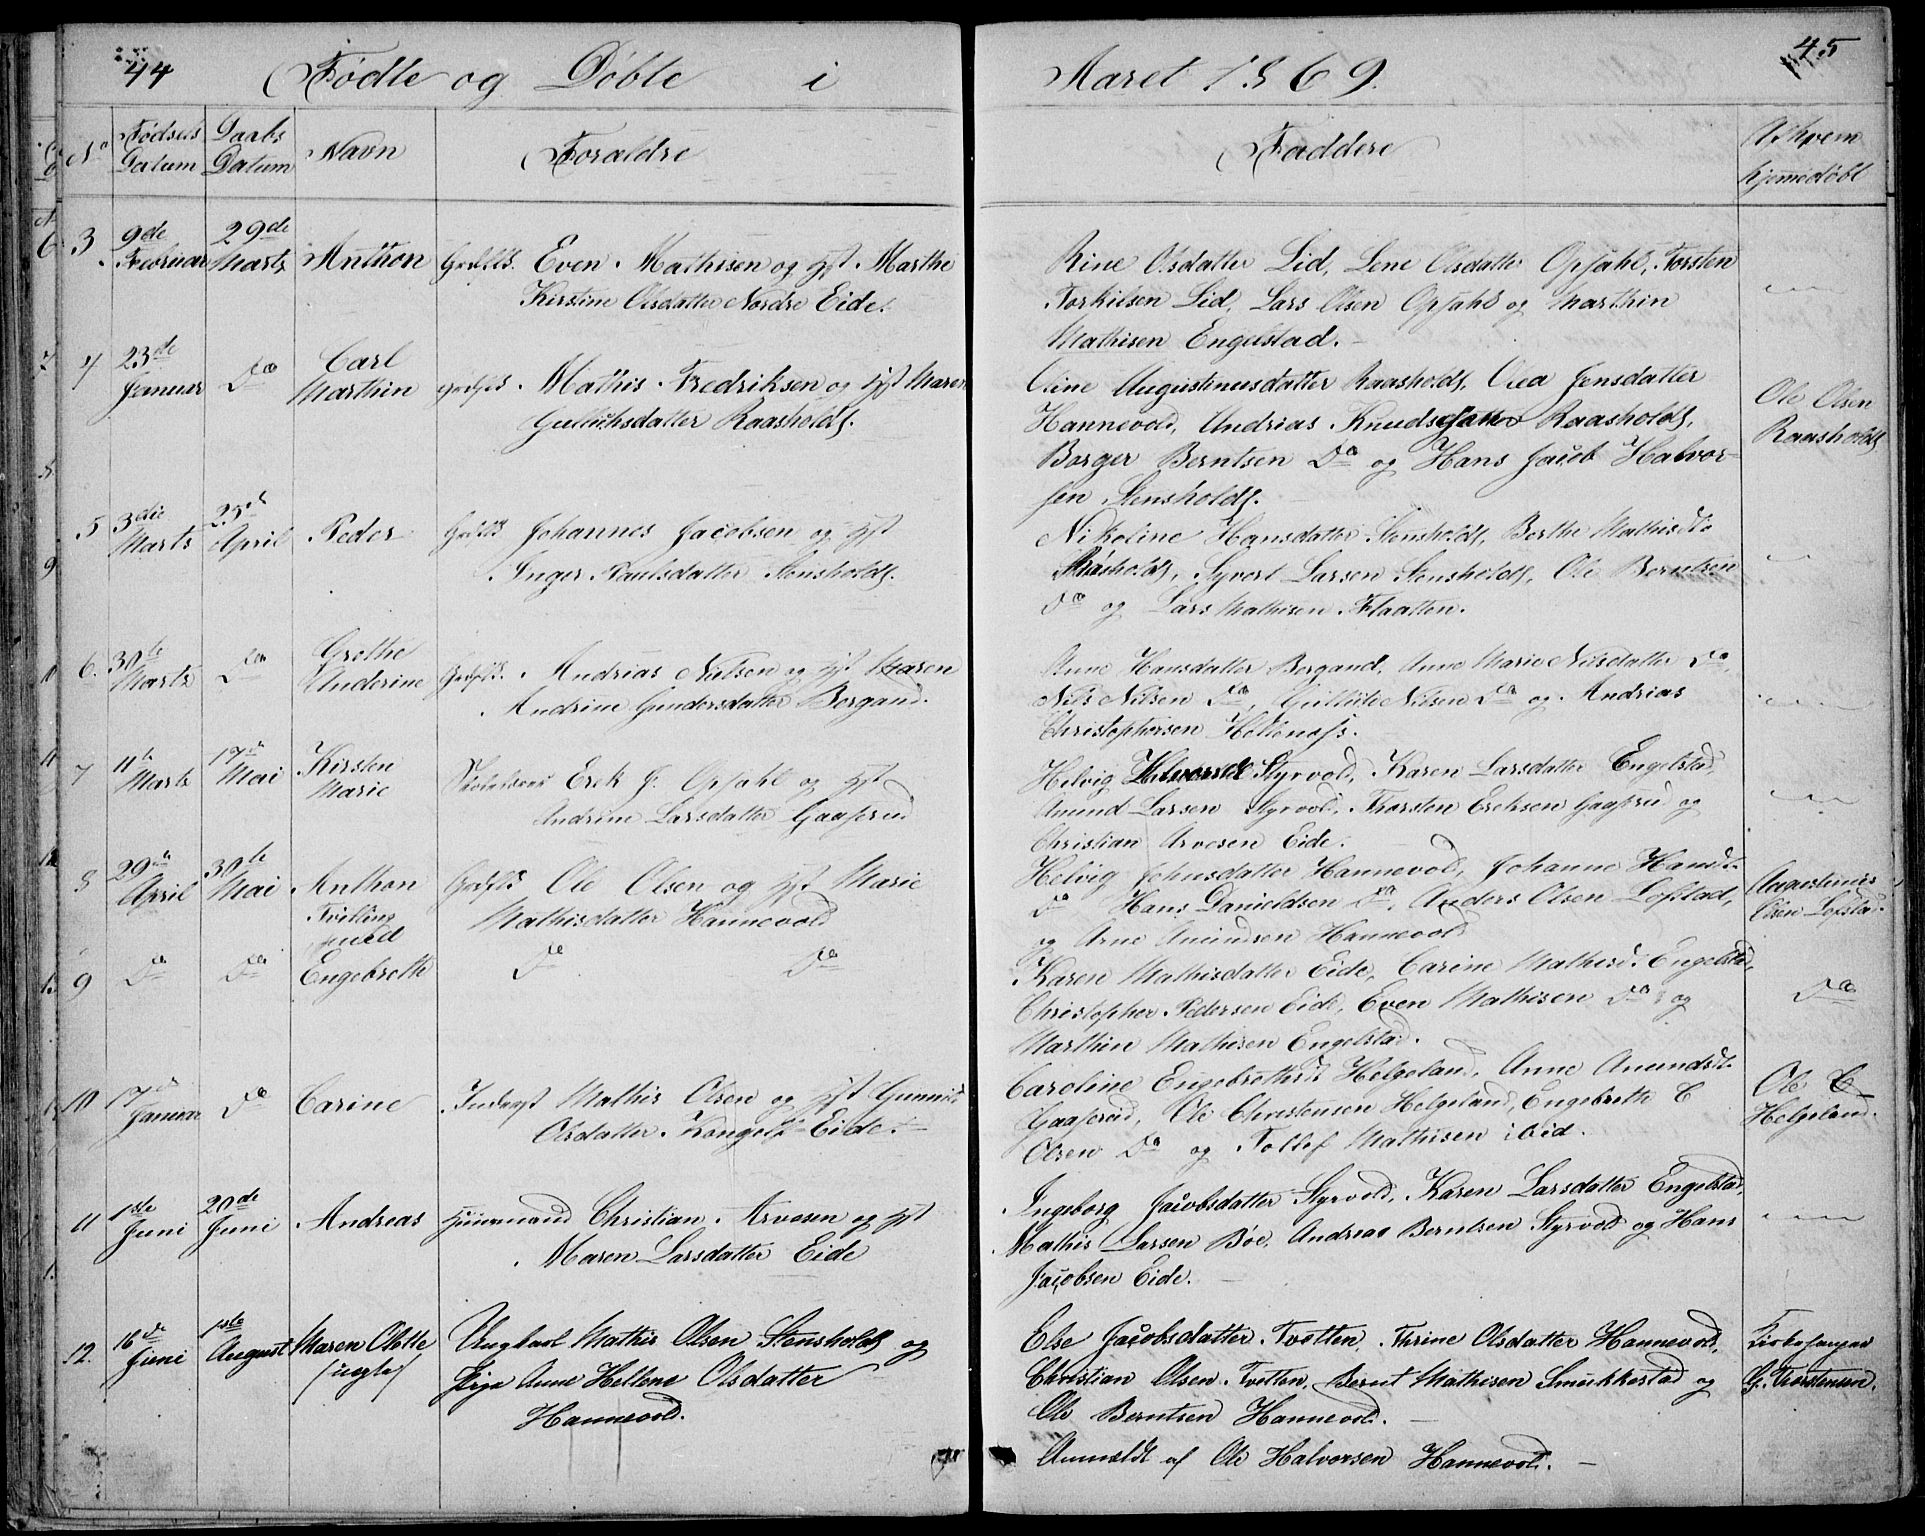 44 Fødte og Døbte i Aaret 1869. 45
No Fødsels Datum Daabs Datum Navn Forældre Faddere Af hvem hjemmedøbt
3. 9de Februar 29de Marts Anthon Gaardfld. Even Mathisen og Hst Marthe
Kirstine Olsdatter Nordre Eide.
Rine Olsdatter Lid, Lene Olsdatter Opsahl, Torsten
Torkilsen Lid, Lars Olsen Opsahl og Marthin
Mathisen Engelstad.
4 23de Januar Do Carl Marthin Gaardfld. Mathis Fredriksen og Hst Maren
Gulliksdatter Raasholdt.
Oline Augustinusdatter Raasholdt, Olea Jensdatter
Hannevold, Andrias Knuds Raasholdt,
Borger Berntsen Do og Hans Jacob Halvor-
sen Stensholdt.
Ole Olsen
Raasholdt
5 3die Marts 25de April Peder Gaardfld. Johannes Jacobsen og Hst
Inger Paulsdatter Stensholdt.
Nikoline Hansdatter Stensholdt, Berthe Mathisdt.
Råsholdt, Syvert Larsen Stensholdt, Ole Berntsen
Do og Lars Mathisen Flaatten.
6. 30te Marts Do Grethe Anderine Gaardfld. Andrias Nilsen og Hst Karen
Andrine Gundersdatter Bergand.
Anne Hansdatter Bergand, Anne Marie Nilsdatter Do,
Nils Nilsen Do, Gullik Nilsen Do og Andrias
Christophersen Hellenæss.
7 11te Marts 17de Mai Kirsten Marie Skolelærer Erik J. Opsahl og Hst
Andrine Larsdatter Gaaserud
Helvig Styrvold, Karen Larsdatter Engelstad,
Amund Larsen Styrvold, Thorsten Eriksen Gaaserud og
Christian Arvesen Eide.
8 29de April 30te Mai Anthon Gaardfld. Ole Olsen og Hst Marie
Tvilling med
Mathisdatter Hannevold
Helvig Johnsdatter Hannevold, Johanne Hansdt.
Do Hans Danieldsen Do, Anders Olsen Lofstad,
og Arne Amundsen Hannevold
Augustinus
Olsen Lofstad.
9 Do Do Engebreth Do Do
Karen Mathisdatter Eide, Carine Mathisd. Engelstad,
Christopher Pedersen Eide, Even Mathisen Do og
Marthin Mathisen Engelstad.
Do
10 17de Januar Do Carine Inderst Mathis Olsen og Hst Gunnild
Olsdatter Kongelf Eide.
Caroline Engebrethsd. Helgeland, Anne Amundsdt.
Gaaserud, Ole Christensen Helgeland, Engebreth C
Olsen Do og Tollef Mathisen ibid.
Ole C
Helgeland.
11 1ste Juni 20de Juni Andreas Huusmand Christian Arvesen og Hst
Maren Larsdatter Eide
Ingeborg Jacobsdatter Styrvold, Karen Larsdatter Engelstad,
Mathis Larsen Bøe, Andreas Berntsen Styrvold og Hans
Jacobsen Eide.
12. 16de Juni 1ste August Maren Oktte Ungkarl Mathis Olsen Stensholdt og
(uægte)
Pige Anne Hellene Olsdatter
Hannevold.
Else Jacobsdatter Tvetten, Thrine Olsdatter Hannevold,
Christian Olsen Tvetten, Bernt Mathisen Smukkestad og
Ole Berntsen Hannevold.
Anmeldt af Ole Halvorsen Hannevold.
Kirkesanger
G. Thorstensen.